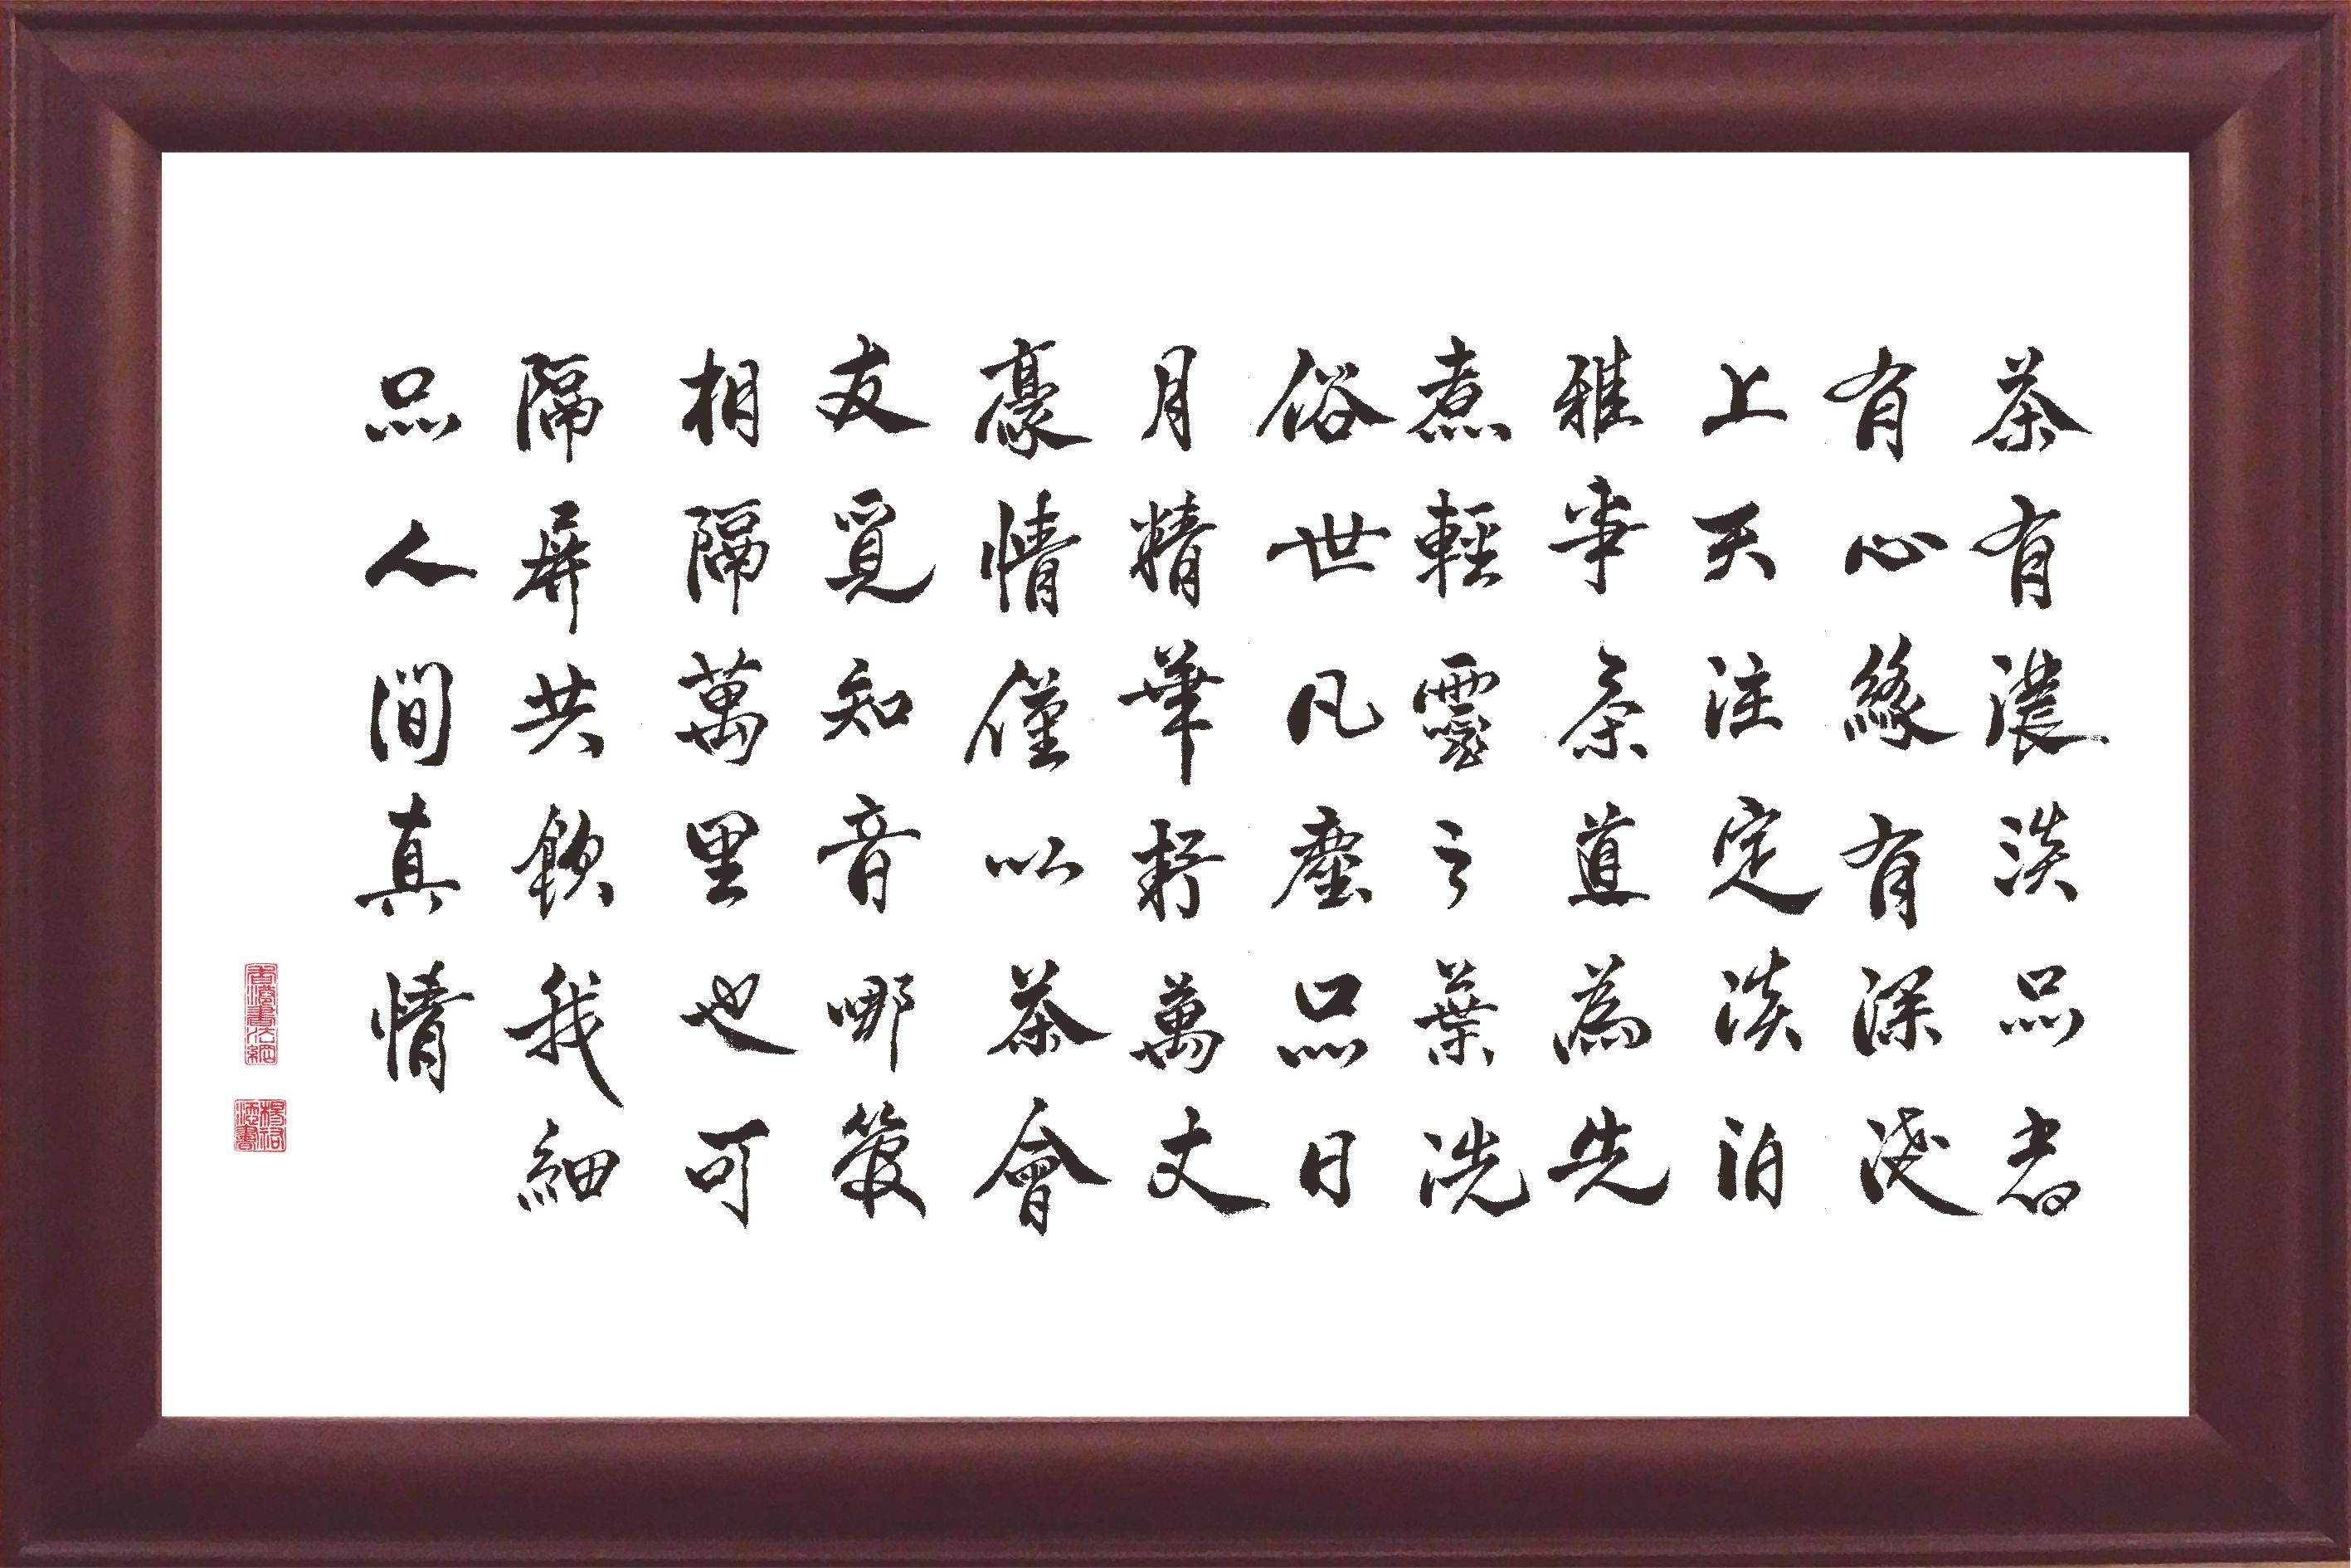 茶有濃淡品者
有心緣有深淺
上天注定淡泊
雅事茶道為先
煮輕靈之葉洗
俗世凡塵品日
月精華抒萬丈
豪情僅以茶會
友覓知音哪管
相隔萬里也可
隔屏共飲我細
品人間真情